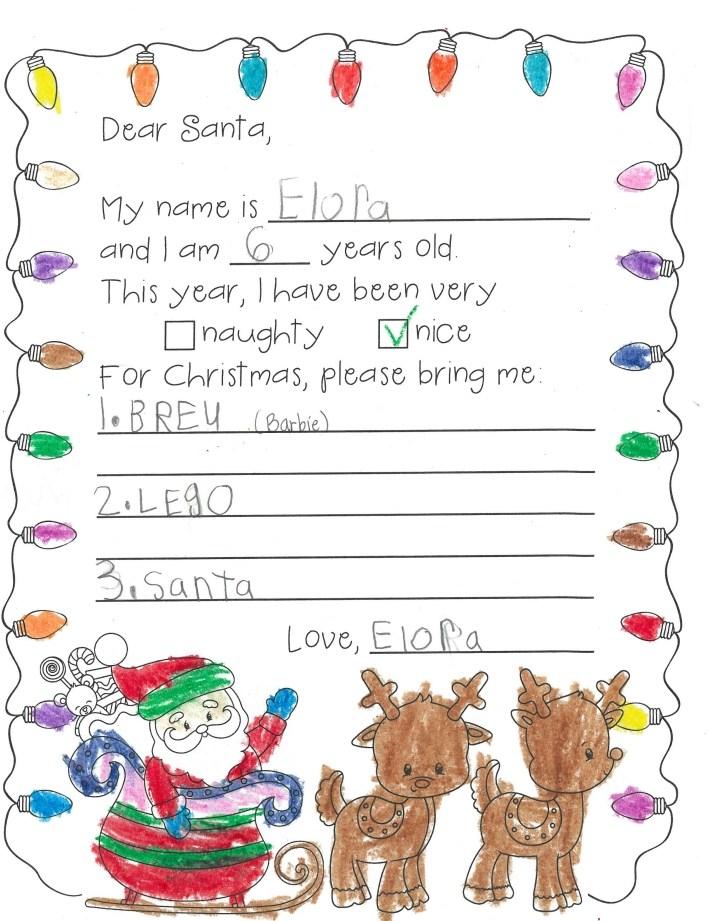 Dear Santa,
My name is Elora
and I am 6 years old.
This year, I have been very
naughty nice
For Christmas, please bring me:
1. BREY (Barbie)
2. LEgO
3. Santa
Love, Elora